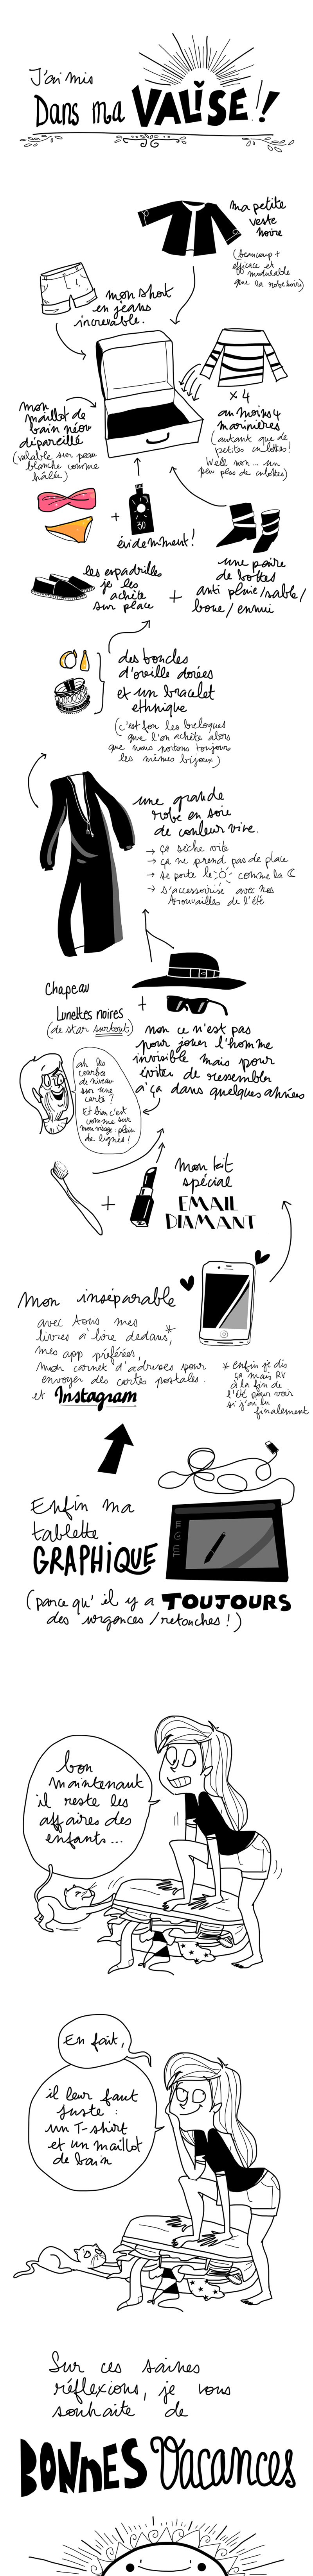 J'ai mis
Dans ma VALISE!!
ma petite
veste
noire
(beaucoup +
efficace et
modulable
que la robe noire)
mon short
en jeans
increvable.
x 4
au moins 4
marinières
(autant que de
petites culottes!
Well non... un
peu plus de culottes)
mon
maillot de
bain néon
dépareillé
(valable sur peau
blanche comme
hâlée)
+
30
évidemment!
une paire
de bottes
anti pluie/sable/
boue/ennui
les espadrilles
je les
achète
sur place
+
des boucles
d'oreille dorées
et un bracelet
ethnique
(c'est fou les breloques
que l'on achète alors
que nous portons toujours
les mêmes bijoux)
une grande
robe en soie
de couleur vive.
→ ça sèche vite
→ ça ne prend pas de place
→ se porte le comme la
→ s'accessoirise avec nos
trouvailles de l'été
Chapeau
+
Lunettes noires
(de star surtout)
non ce n'est pas
pour jouer l'homme
invisible mais pour
éviter de ressembler
à ça dans quelques années
ah les
courbes
de niveau
sur une
carte?
Et bien c'est
comme sur
mon visage: plein
de lignes!
+
mon kit
spécial
EMAIL
DIAMANT
Mon inséparable
avec tous mes
livres à lire dedans*,
mes app préférées,
mon carnet d'adresses pour
envoyer des cartes postales.
et Instagram
* enfin je dis
ça mais RV
à la fin de
l'été pour voir
si j'ai lu
finalement
Enfin ma
tablette
GRAPHIQUE
(parce qu'il y a TOUJOURS
des urgences/retouches!)
bon
maintenant
il reste les
affaires des
enfants...
En fait,
il leur faut
juste:
un T-shirt
et un maillot
de bain
Sur ces saines
réflexions, je vous
souhaite de
BONNES Vacances